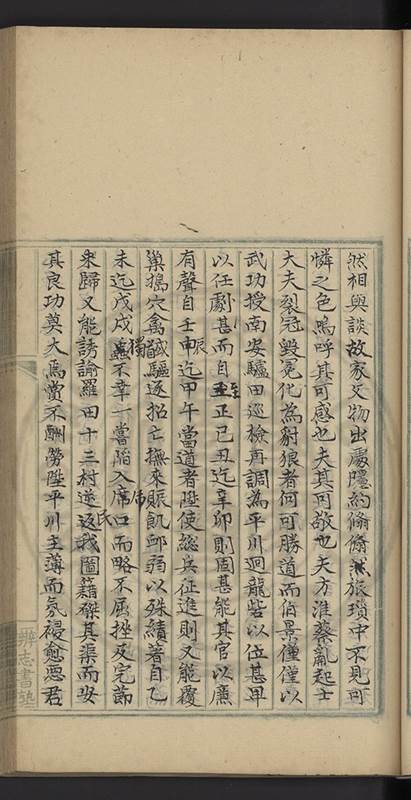 然相與談故家文物出處隱約翛翛然旅瑣中不見可
憐之色嗚呼其可感也夫其可敬也夫方淮蔡亂起士
大夫裂冠毀冕化為豺狼者何可勝道而伯景僅僅以
武功授南安驢田巡檢再調為平川迴龍砦以位甚卑
以任劇甚而自至正己丑迄辛卯則固甚能其官以廉
有聲自壬辰迄甲午當道者陞使總兵征進則又能覆
巢搗穴禽馘驅逐招亡撫來賑飢卹弱以殊績著自乙
未迄戊戌獨不幸一嘗陷入席口而略不屈挫及完節
來歸又能誘諭羅田十三村逆民返我圖籍磔其渠而安
其良功莫大焉賞不酬勞陞平川主薄而氛祲愈惡君
辨志書塾